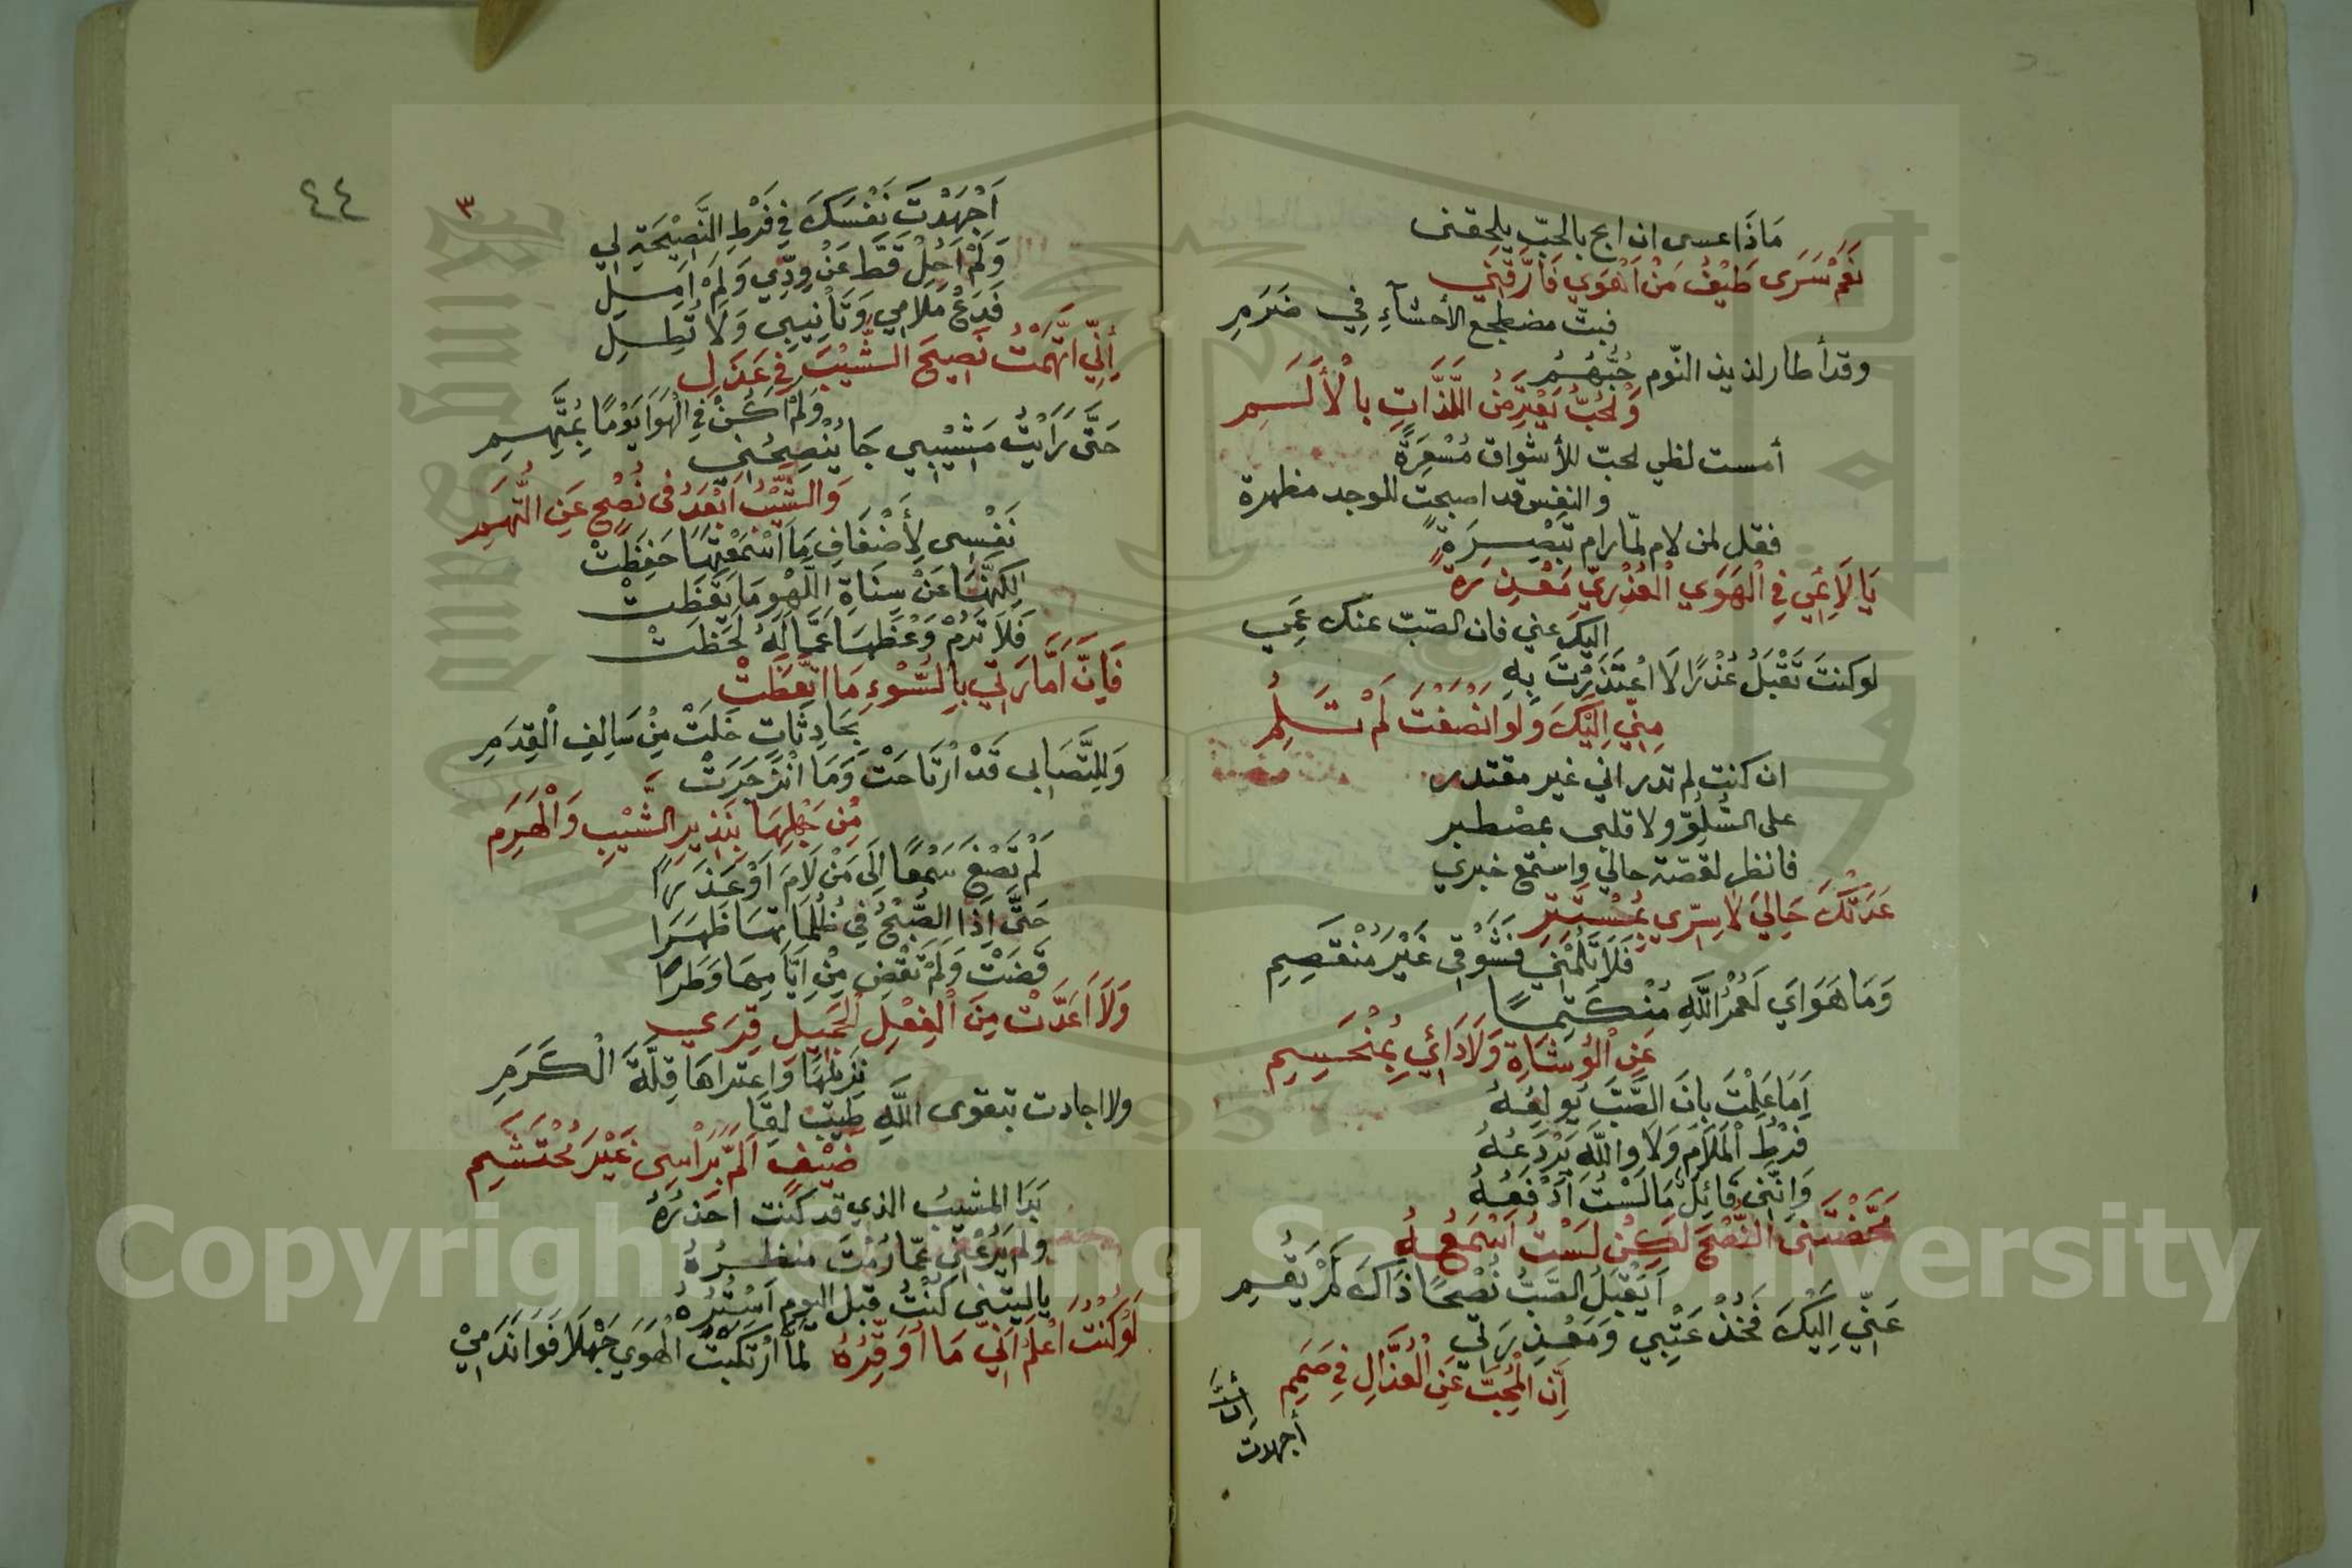 مَاذَا عسى ان ابح بالحبّ يلحقنى
نَعَمْ سَرَى طَيْفُ مَنْ اَهْوَي فَاَرَّقَنِي
فبتّ مضطجع الأحشآءِ فِي ضَرَمِ
وقد أطار لذيذ النّوم حُبُّهُمُ
وَلْحُبُّ يَعْتِرَضُ اللَّذَّاتِ بِالْأَلَسَمِ
أمست لظي لحبّ للأشواق مُسْعِرَةً
والنفس قد اصبحت للوجد مظهرة
فقل لمن لام لمّا رام تَبْصِرَةً
يَا لَائِمِي فِي الْهَوَي الْعُذْرِيّ مَعْذِرَةً
اليك عني فان الصّبّ عنك عَمِي
لو كنتَ تَقْبَلُ عُذْرًا لَا اعْتَذَرْتَ بِهِ
مِنِّي اِلَيْكَ وَلَوْ اَنْصَفْتَ لَمْ تَلُمِ
ان كنت لم تدر اني غير مقتدر
على السُّلوِّ ولا قلبى بمصْطبر
فانظر لقصّة حالي واستمع خبري
عَدَتْكَ حَالِيَ لَا سِرّي بِمُسْتَتِرِ
فَلَا تَلُمْنِي فَشَوْقِي غَيْرُ مُنْقَصِمِ
وَمَا هَوَايَ لَعُمْرُ اللَّهِ مُنْكَتِمًا
عَنِ الْوُشَاةِ وَلَا دَائِي بِمُنْحَسِمِ
اَمَا عَلِمْتَ بِانَ الصَّبَّ يُولِعُهُ
فَرْطُ الْمَلَامِ وَلَا واللَّهِ يَرْدَعُهُ
وَاِنَّنِى قَائِلٌ مَا لَسْتُ اَدْفَعُهُ
مَحَّضْتَنِى النُّصْحَ لَكِنْ لَسْتُ اَسْمَعُهُ
اَيَقْبَلُ الصَّبُّ نُصْحًا ذَاكَ لَمْ يَقُمِ
عَنِّي اِلَيْكَ فَخُذْ عَتْبِي وَمَعْذِرَتِي
اِنَّ الْمُحِبَّ عَنِ الْعُذَّالِ فِي صَمَمِ
أجهدت
٤٤
٣
اَجْهَدْتَ نَفْسَكَ فِي فَرْطِ النَّصِيْحَةِ لِي
وَلَمْ اَحُلْ قَطَّ عَنْ وِدِّي وَلَمْ اَمِلِ
فَدَعْ مَلَامِي وَتَاْنِيبِي وَلَا تُطِلِ
اِنِّي اتَّهَمْتُ نَصِيحَ الشَّيْبَ فِي عَذَلِ
وَلَمْ اَكُنْ فِي الْهَوَا يَوْمًا بِمُتَّهِمِ
حَتَّى رَاَيْتُ مَشِيْبِي جَا يُنْصِحُنِي
وَالشَّيْبُ اَبْعَدُ فى نُصْحٍ عَنِ التُّهَمِ
نَفْسِى لِأَضْعَافِ مَا اَسْمَعْتَهَا حَفِظَتْ
لَكِنَّهَا عَنْ سِنَاةِ اللَّهْوِ مَا يَقَظَتْ
فَلَا تَرُمْ وَعْظَهَا عَمَّا لَهُ لَحَظَتْ
فَاِنَّ اَمَّارَتِي بِالسُّوْءِ مَا اتَّعَظَتْ
بِحَادِثَاتٍ خَلَتْ مِنْ سَالِفِ الْقِدَمِ
وَلِلتَّصَابِي قَدْ ارْتَاحَتْ وَمَا انْزَجَرَتْ
مِنْ جَهْلِهَا بِنَذِيرِ الشَّيْبِ وَالْهَرَمِ
لَمْ تَصْغَ سَمْعًا اِلَى مَنْ لَامَ اَوْ عَذَرَا
حَتَّى اِذَا الصُّبْحُ فِي ظُلْمَاتِهَا ظَهَرَا
قَضَتْ وَلَمْ تَقْضِ مِنْ اَيَّامِهَا وَطَرًا
وَلَا اَعَدَّتْ مِنَ الْفِعْلِ الْجَمِيلِ قِرَى
نَزِيلَهَا وَاعتراهَا قِلَّةُ الْكَرَمِ
ولا اجادت بتقوى اللَّهِ طيب لِقَا
ضَيْفٍ اَلَمَّ بِرَاْسِى غَيْرَ مُحْتَشِمِ
بَدَا المشيبُ الذي قد كنت احذَرُهُ
ولم يَرُعْنِى عمّا رُمْتَ منظرُهُ
ياليتنى كُنْتُ قبل اليوم اَسْتُرُهُ
لَوْ كُنْتُ اَعْلَمُ اَنِّي مَا اُوَقِّرُهُ لَمَّا ارْتَكَبْتُ الْهَوَي جَهْلًا فَوَانَدَمِيْ